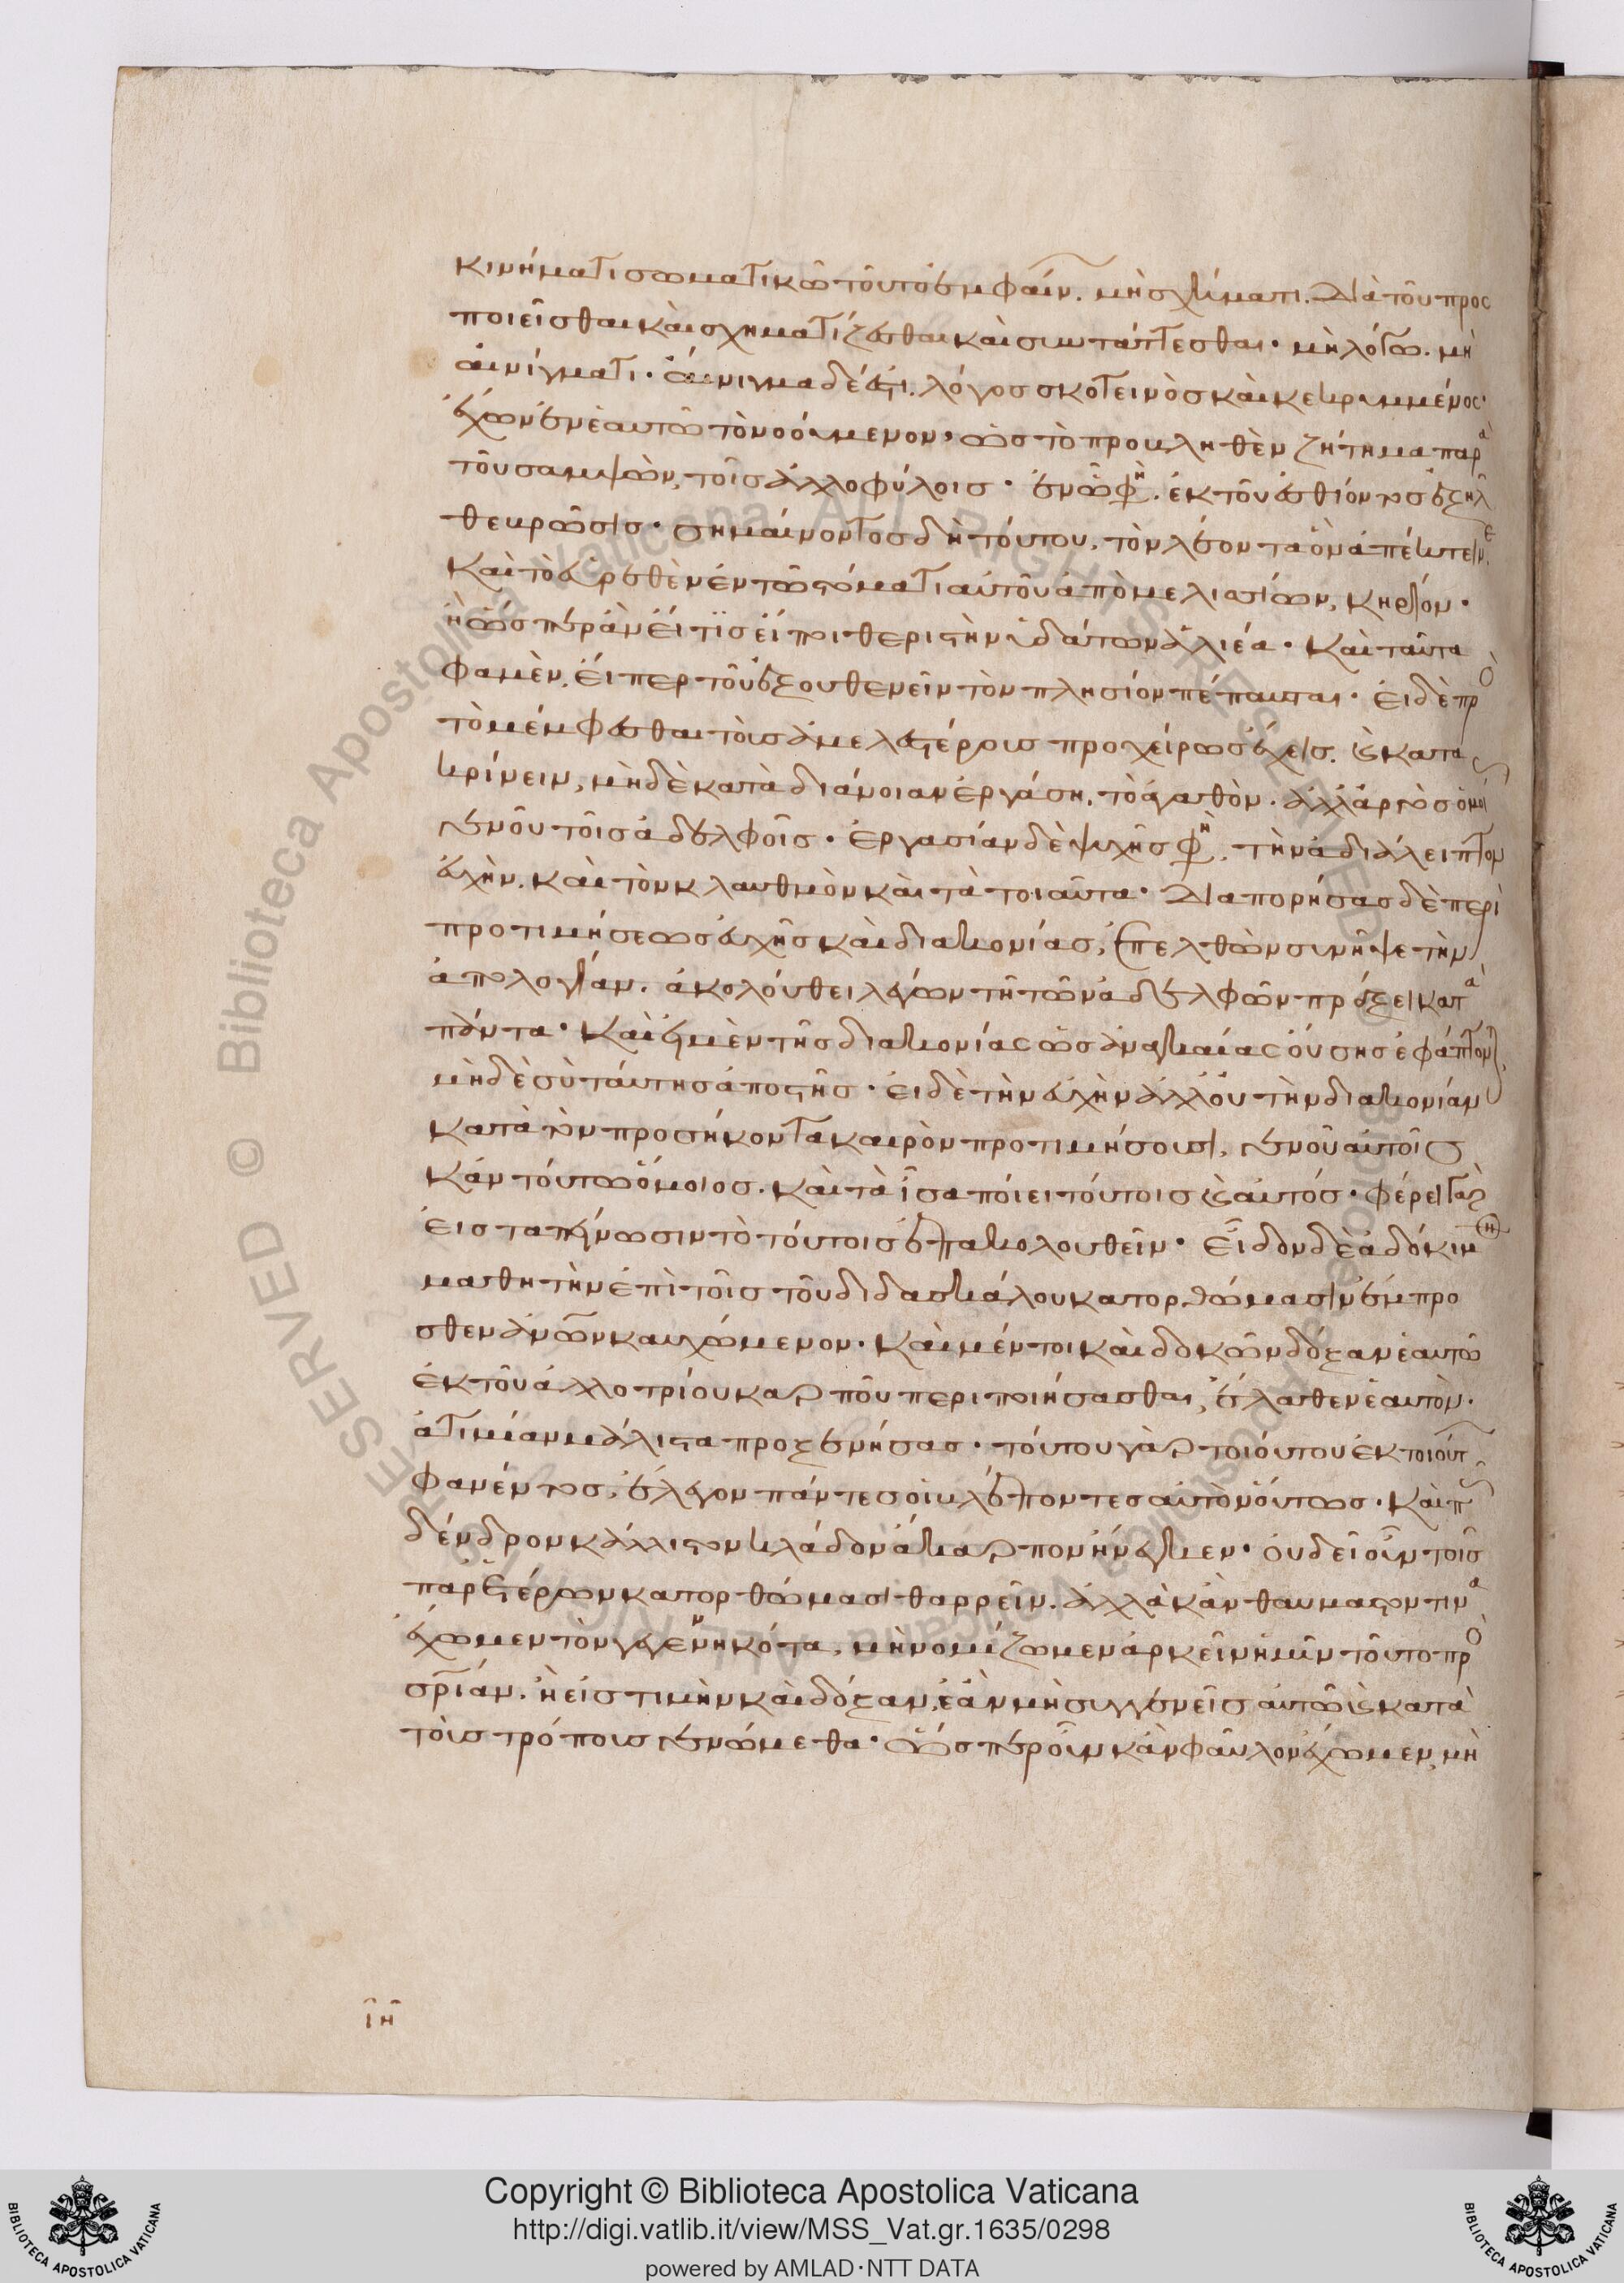 κινήματι σωματικῶ τοῦτο ἐμφαίν. μὴ σχήματι. διὰ τοῦ προσ
ποιεῖσθαι καὶ σχηματίζεσθαι καὶ συντάττεσθαι· μὴ λόγω. μὴ
αἰνίγματι· αἴνιγμα δέ ἐστι. λόγοσ σκοτεινὸσ καὶ κεκρυμμένος·
ἔχων ἐν ἑαυτῶ τὸ νοούμενον, ὡσ τὸ προβληθὲν ζήτημα παρὰ
τοῦ σαμψὼν, τοῖσ ἀλλοφύλοισ· ἐν ὧ φη. ἐκ τοῦ ἐσθίοντοσ ἐξῆλ
θε βρῶσισ· σημαίνοντοσ δὴ τούτου, τὸν λέοντα ὃν ἀπέκτεινε.
Καὶ τὸ εὑρεθὲν ἐν τῶ στόματι αὐτοῦ ἀπὸ μελισσῶν, κηρίον·
ἢ ὥσπερ ἂν εἴ τισ εἴποι θεριστὴν ὑδάτων ἁλιέα· Καὶ ταῦτα
φαμὲν, εἴπερ τοῦ ἐξουθενεῖν τὸν πλησίον πέπαυται· εἰ δὲ πρὸ
τὸ μέμφεσθαι τοὺσ ἀμελεστέρουσ προχείρωσ ἔχεισ. καὶ κατα
κρίνειν, μὴ δὲ κατὰ διάνοιαν ἐργάση, τὸ ἀγαθὸν. ἀλλ' ἀργὸσ ὁμοί
γενοῦ τοῖσ ἀδελφοῖσ· ἐργασίαν δὲ ψυχῆσ φη, τὴν ἀδιάλειπτον
εὐχὴν. καὶ τὸν κλαυθμὸν καὶ τὰ τοιαῦτα· Διαπορήσασ δὲ περὶ
προτιμήσεωσ εὐχῆσ καὶ διακονίασ, ἐπελθὼν συνῆψε τὴν
ἀπολογίαν. ἀκολούθει λέγων τῆ τῶν ἀδελφῶν πράξει κατὰ
πάντα· Καὶ εἰ μὲν τῆσ διακονίασ ὡσ ἀναγκαίασ οὔσησ ἐφάπτον
μὴ δὲ σὺ ταύτησ ἀποστῆσ· εἰ δὲ τὴν εὐχὴν ἀλλ' οὐ τὴν διακονίαν
κατὰ τὸν προσήκοντα καιρὸν προτιμήσουσι, γενοῦ αὐτοῖσ
κἀν τούτω ὅμοιοσ. καὶ τὰ ἶσα ποίει τούτοισ καὶ αὐτόσ· φέρει γὰρ
εἰσ ταπείνωσιν τὸ τούτοισ ἐπακολουθεῖν· Εἶδον δὲ ἀδόκιμ
μαθητὴν ἐπὶ τοῖσ τοῦ διδασκάλου κατορθώμασιν ἔμπρο
σθεν ἀνων καυχώμενον. Καὶ μέντοι καὶ δοκῶν δόξαν ἑαυτῶ
ἐκ τοῦ ἀλλοτρίου καρποῦ περιποιήσασθαι, ἔλαθεν ἑαυτὸν.
ἀτιμίαν μάλιστα προξενήσασ· τούτου γὰρ τοιούτου ἐκ τοιούτ
φανέντοσ, ἔλεγον πάντεσ οἱ βλέποντεσ αὐτὸν οὕτωσ. Καὶ π
δένδρον κάλλιστον κλάδον ἄκαρπον ἤνεγκεν· οὐ δεῖ οὖν τοῖσ
παρ' ἑτέρων κατορθώμασι θαρρεῖν. ἀλλὰ κὰν θαυμαστόν τινα
ἔχωμεν τὸν γεγεννηκότα, μὴ νομίζωμεν ἀρκεῖν ἡμῖν τοῦτο πρὸ
σρίαν. ἢ εἰσ τιμὴν καὶ δόξαν, ἐὰν μὴ συγγενεῖσ αὐτῶ καὶ κατὰ
τοὺσ τρόπουσ γενώμεθα· ὥσπερ οὖν κὰν φαῦλον ἔχωμεν, μὴ
ιη
© Biblioteca Apostolica Vaticana ALL RIGHTS RESERVED
Copyright © Biblioteca Apostolica Vaticana
http://digi.vatlib.it/view/MSS_Vat.gr.1635/0298
powered by AMLAD·NTT DATA
BIBLIOTECA APOSTOLICA VATICANA
BIBLIOTECA APOSTOLICA VATICANA